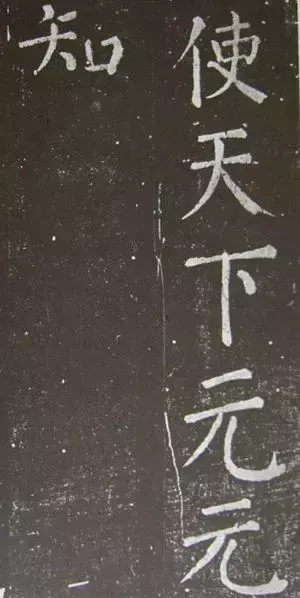 使天下元元
知